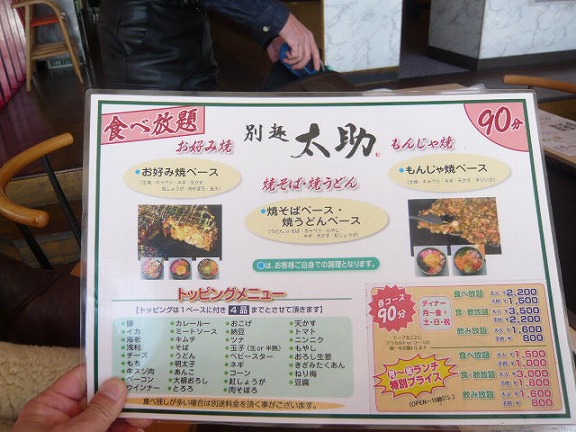 食べ放題
別趣 太助
90分
お好み焼
もんじゃ焼
お好み焼ベース
焼そば・焼うどん
もんじゃ焼ベース
焼そばベース・
焼うどんベース
○は、お客様ご自身での調理となります。
トッピングメニュー
【トッピングは1ベースに付き4品までとさせて頂きます】
・豚
・イカ
・海老
・浅利
・チーズ
・もち
・牛スジ肉
・ベーコン
・ウインナー
・カレールー
・ミートソース
・キムチ
・そば
・うどん
・明太子
・あんこ
・大根おろし
・とろろ
・おこげ
・納豆
・ツナ
・玉子(生or半熟)
・ベビースター
・ネギ
・コーン
・紅しょうが
・肉そぼろ
・天かす
・トマト
・ニンニク
・もやし
・おろし生姜
・きざみたくあん
・ねり梅
・豆腐
食べ残しが多い場合は別途料金を頂く事がございます。
各コース
90分
ディナー
月〜金・
土・日・祝
食べ放題 大人 ¥2,200
¥1,500
食・飲放題 大人 ¥3,500
¥2,200
飲み放題 大人 ¥1,600
800
ランチ
特別プライス
食べ放題 大人 ¥1,500
¥1,000
食・飲放題 ¥3,000
¥1,800
飲み放題 ¥1,600
¥800